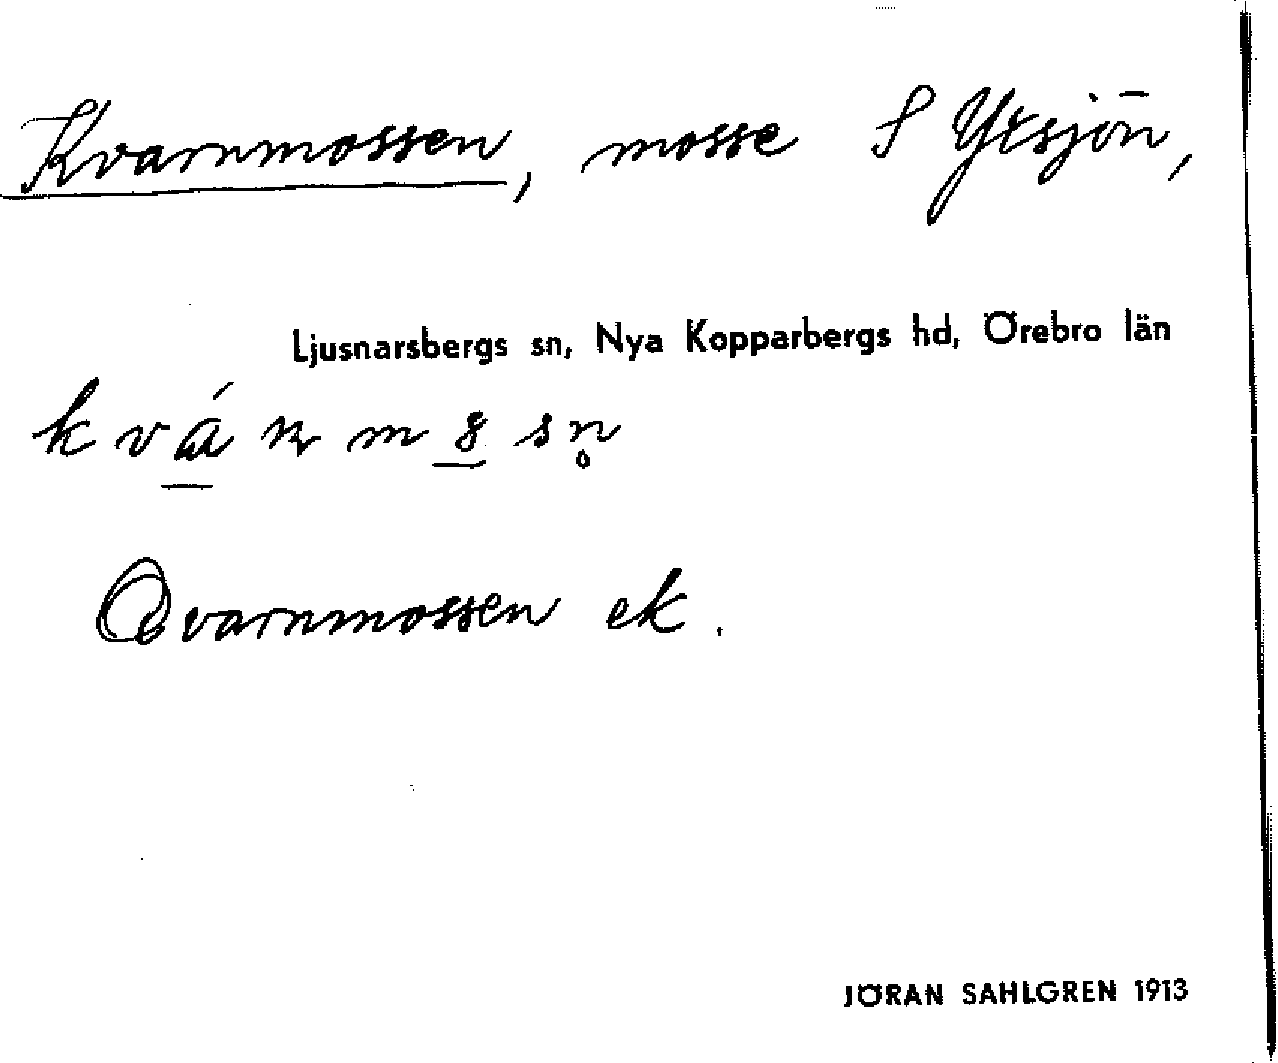 Kvarnmossen, mosse S Yxsjön,
Ljusnarsbergs sn, Nya Kopparbergs hd, Örebro län
Qvarnmossen ek.
JÖRAN SAHLGREN 1913